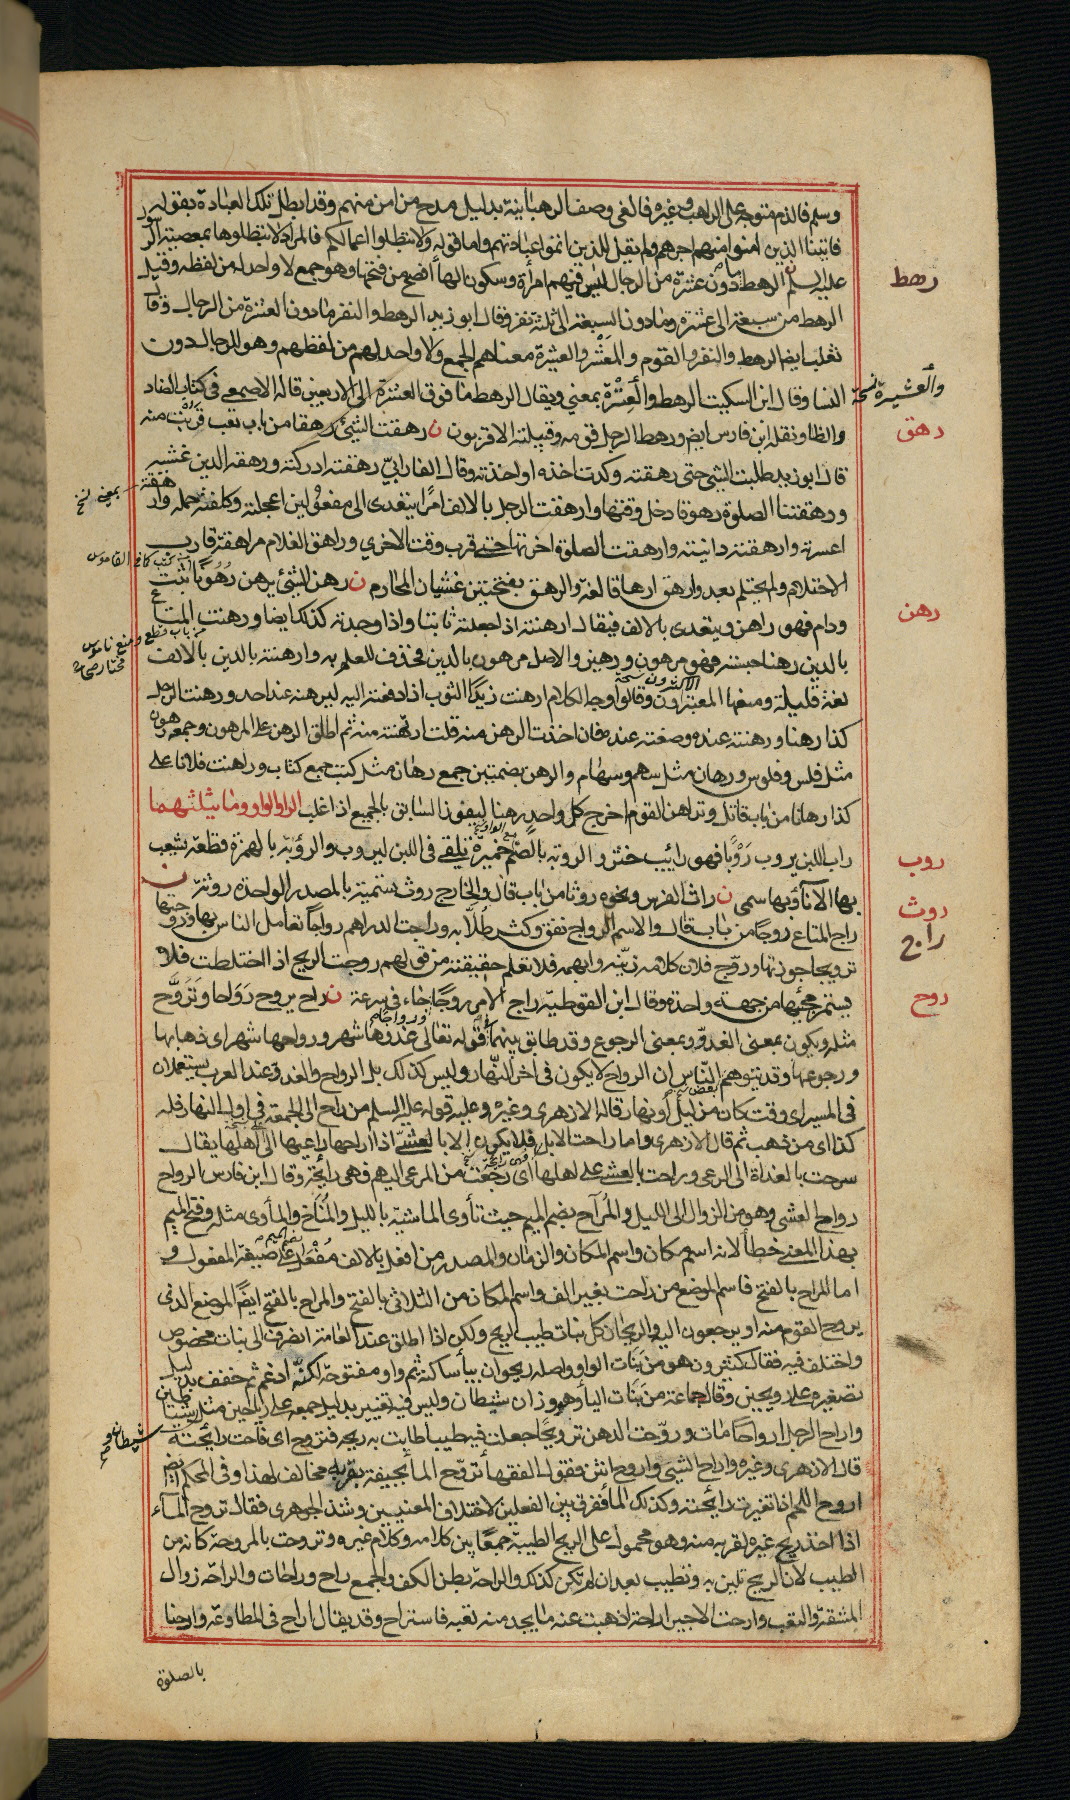 وسلم فالذم متوجه على الراهب وغيره فالغى وصف الرهبانية بدليل مدح من امن منهم وقد ابطل تلك العبادة بقوله
فاتينا الذين امنوا منهم اجرهم ولم يقل للذين اتموا عبادتهم واما قوله ولا تبطلوا اعمالكم فالمراد لا تبطلوها بمعصية الرسول
عليه السلم ن الرهط ما دون عشرة من الرجال ليس فيهم امرأة وسكون الهاء افصح من فتحها وهو جمع لا واحد له من لفظه وقيل
رهط
الرهط من سبعة الى عشرة وما دون السبعة الى ثلثة نفر وقال ابو زيد الرهط والنفر ما دون العشرة من الرجال وقال
ثعلب ايضا الرهط والنفر والقوم والمعشر والعشيرة معناهم الجمع ولا واحد لهم من لفظهم وهو للرجال دون
النسا وقال ابن السكيت الرهط والعشرة بمعنى ويقال الرهط ما فوق العشرة الى الاربعين قاله الاصمعى فى كتاب الضاد
والعشيرة نسخة
والظا ونقله ابن فارس ايضا ورهط الرجل قومه وقبيلته الاقربون ن رهقت الشئ رهقا من باب تعب قربت منه
رهق
قال ابو زيد طلبت الشئ حتى رهقته وكدت اخذه او اخذته وقال الفارابى رهقته ادركته ورهقه الدين غشيه
ورهقتنا الصلوة رهوقا دخل وقتها وارهقت الرجل بالالف امرا يتعدى الى مفعولين اعجلته وكلفته حمله وارهقته
بمعنى نسخ
اعسرته وارهقته دانيته وارهقت الصلوة اخرتها حتى قرب وقت الاخرى وراهق الغلام مراهقة قارب
الاحتلام ولم يحتلم بعد وارهق ارهاقا لغة والرهق بفتحتين غشيان المحارم ن رهن الشئ يرهن رهونا ثبت
ودام فهو راهن ويتعدى بالالف فيقال ارهنته اذا جعلته ثابتا واذا وجدته كذلك ايضا ورهنت المتاع
رهن
بالدين رهنا حبسته فهو مرهون ورهين والاصل مرهون بالدين فحذف للعلم به وارهنته بالدين بالالف
لغة قليلة ومنعها الاكثرون وقالوا وجه الكلام ارهنت زيدا الثوب اذا دفعته اليه ليرهنه عند احد ورهنت الرجل
كذا رهنا ورهنته عنده وضعته عنده فان اخذت الرهن منه قلت ارتهنته منه ثم اطلق الرهن على المرهون وجمعه رهون
مثل فلس وفلوس ورهان مثل سهم وسهام والرهن بضمتين جمع رهان مثل كتب جمع كتاب وراهنت فلانا على
كذا رهانا من باب قاتل وتراهن القوم اخرج كل واحد رهنا ليفوز السابق بالجميع اذا غلب الرا والواو وما يثلثهما
راب اللبن يروب روبا فهو رائب خثر والروبة بالضم خميرة تلقى فى اللبن ليروب والرؤبة بالهمزة قطعة يشعب
روب
بها الاناء وبها سمى ن راث الفرس ونحوه روثا من باب قال والخارج روث تسمية بالمصدر الواحدة روثة ن
روث
راج المتاع روجا من باب قال والاسم الرواج نفق وكثر طلابه وراجت الدراهم رواجا تعامل الناس بها وروجتها
راج
ترويجا جوزتها وروج فلان كلامه زينه وابهمه فلا تعلم حقيقته من قولهم روجت الريح اذا اختلطت فلا
يستمر مجيئها من جهة واحدة وقال ابن القوطية راج الامر روجا ورواجا جاء فى سرعة ن راح يروح رواحا وتروح
روح
مثله ويكون بمعنى الغدو وبمعنى الرجوع وقد طابق بينهما قوله تعالى غدوها شهر ورواحها شهر اى ذهابها
ورجوعها وقد يتوهم بعض الناس ان الرواح لا يكون فى اخر النهار وليس كذلك بل الرواح والغدو عند العرب يستعملان
فى المسير اى وقت كان من ليل او نهار قاله الازهرى وغيره وعليه قوله عليه السلم من راح الى الجمعة فى اول النهار فله
كذا اى من ذهب ثم قال الازهرى واما راحت الابل فلا يكون الا بالعشى اذا اراحها راعيها الى اهلها يقال
سرحت بالغداة الى الرعى وراحت بالعشى على اهلها اى رجعت من المرعى اليهم فهى رائحة وقال ابن فارس الرواح
رواح العشى وهو من الزوال الى الليل والمراح بضم الميم حيث تأوى الماشية بالليل والمناخ والمأوى مثله وفتح الميم
بهذا المعنى خطأ لانه اسم مكان واسم المكان والزمان والمصدر من افعل بالالف مفعل على صيغة المفعول و
اما المراح بالفتح فاسم الموضع من راحت بغير الف واسم المكان من الثلاثى بالفتح والمراح بالفتح ايضا الموضع الذى
يروح القوم منه او يرجعون اليه والريحان كل نبات طيب الريح ولكن اذا اطلق عند العامة انصرف الى نبات مخصوص
واختلف فيه فقال كثيرون هو من بنات الواو واصله ريوحان بياء ساكنة ثم واو مفتوحة لكنه ادغم ثم خفف بدليل
تصغيره على رويحين وقال جماعة من بنات الياء وهو وزان شيطان وليس فيه تغيير بدليل جمعه على رياحين مثل شيطان
شيطان و
واراح الرجل ارواحا مات وروحت الدهن ترويحا جعلت فيه طيبا طابت به ريحه فتروح اى فاحت رائحته
قال الازهرى وغيره واراح الشئ واروح انتن فقول الفقهاء تروح الماء بجيفة بقربه مخالف لهذا وفى المحكم ايضا
اروح اللحم اذا تغيرت رائحته وكذلك الماء ففرق بين الفعلين لاختلاف المعنيين وشذ الجوهرى فقال تروح الماء
اذا اخذ ريح غيره لقربه منه وهو محمول على الريح الطيبة جمعا بين كلامه وكلام غيره وتروحت بالمروحة كانه من
الطيب لان الريح تلين به وتطيب بعد ان لم تكن كذلك والراحة بطن الكف والجمع راح وراحات والراحة زوال
المشقة والتعب وارحت الاجير اراحة اذهبت عنه ما يجد من تعبه فاستراح وقد يقال اراح فى المطاوعة وارحنا
بالصلوة